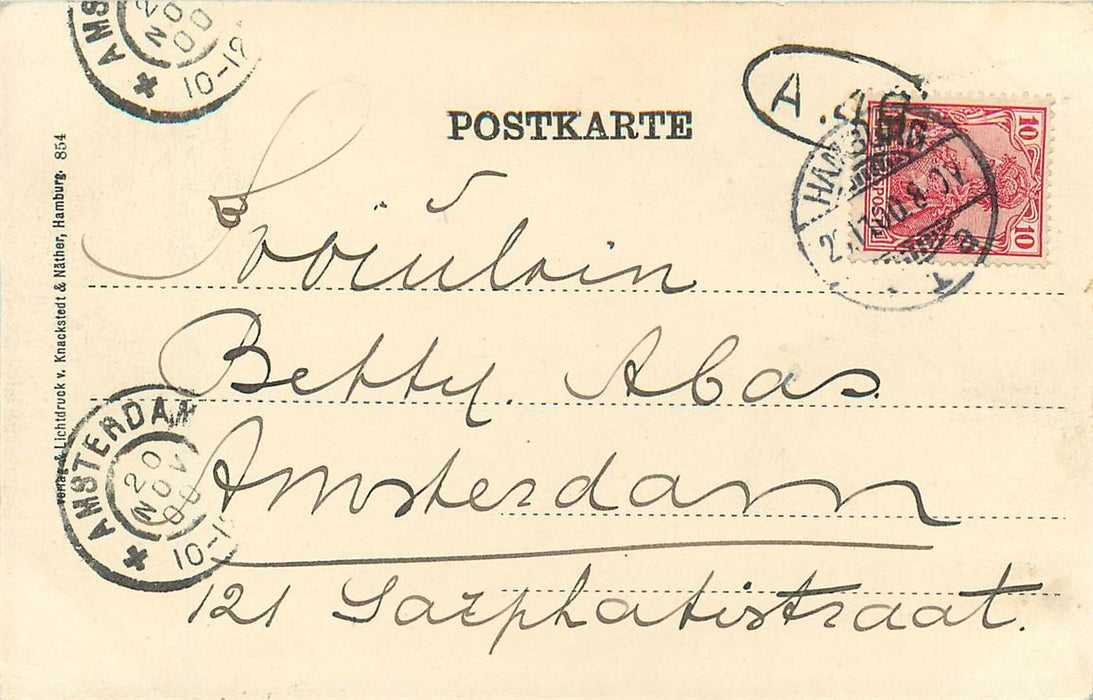 AMS
20
NOV
00
10-12
A.10
POSTKARTE
HAMBURG
8
10
10
REICHSPOST
Fräulein
Betty Abas.
Amsterdam
121 Sarphatistraat.
AMSTERDAM
20
NOV
00
10-12
Verlag & Lichtdruck v. Knackstedt & Näther, Hamburg. 854